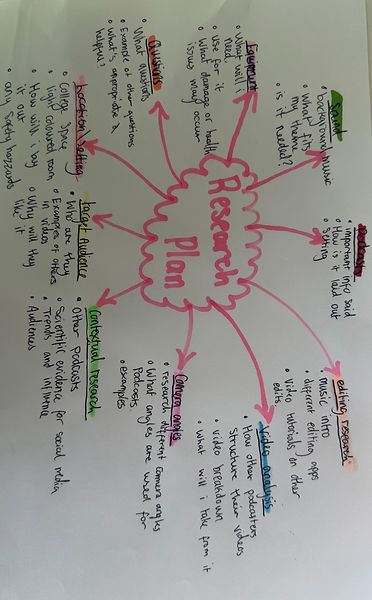 Research
Plan
Sound
• background music
• what fits
my theme
• is it needed?
Equipment
• What will i
need
• use for it
• what damage or health
issues may occur
Questions
• What questions
• Example of other questions
• what's appropriate &
helpful?
Location/Setting
• College space
• light coloured room
• How will i lay
it out
• any safety hazzards
Target Audience
• Who are they
• Examples of others
in videos
• Why will they
like it
Contextual research
• Other Podcasts
• Scientific evidence for social media
• Trends and influence
• Audiences
Camera angles
• research different camera angles
• What angles are used for
Podcasts
• examples
Video analysis
• How other podcasters
structure their videos
• video breakdown
• what will i take from it
editing research
• music intro
• different editing apps
• video tutorials on other
edits
Podcasts
• important info said
• How is it laid out
• Setting